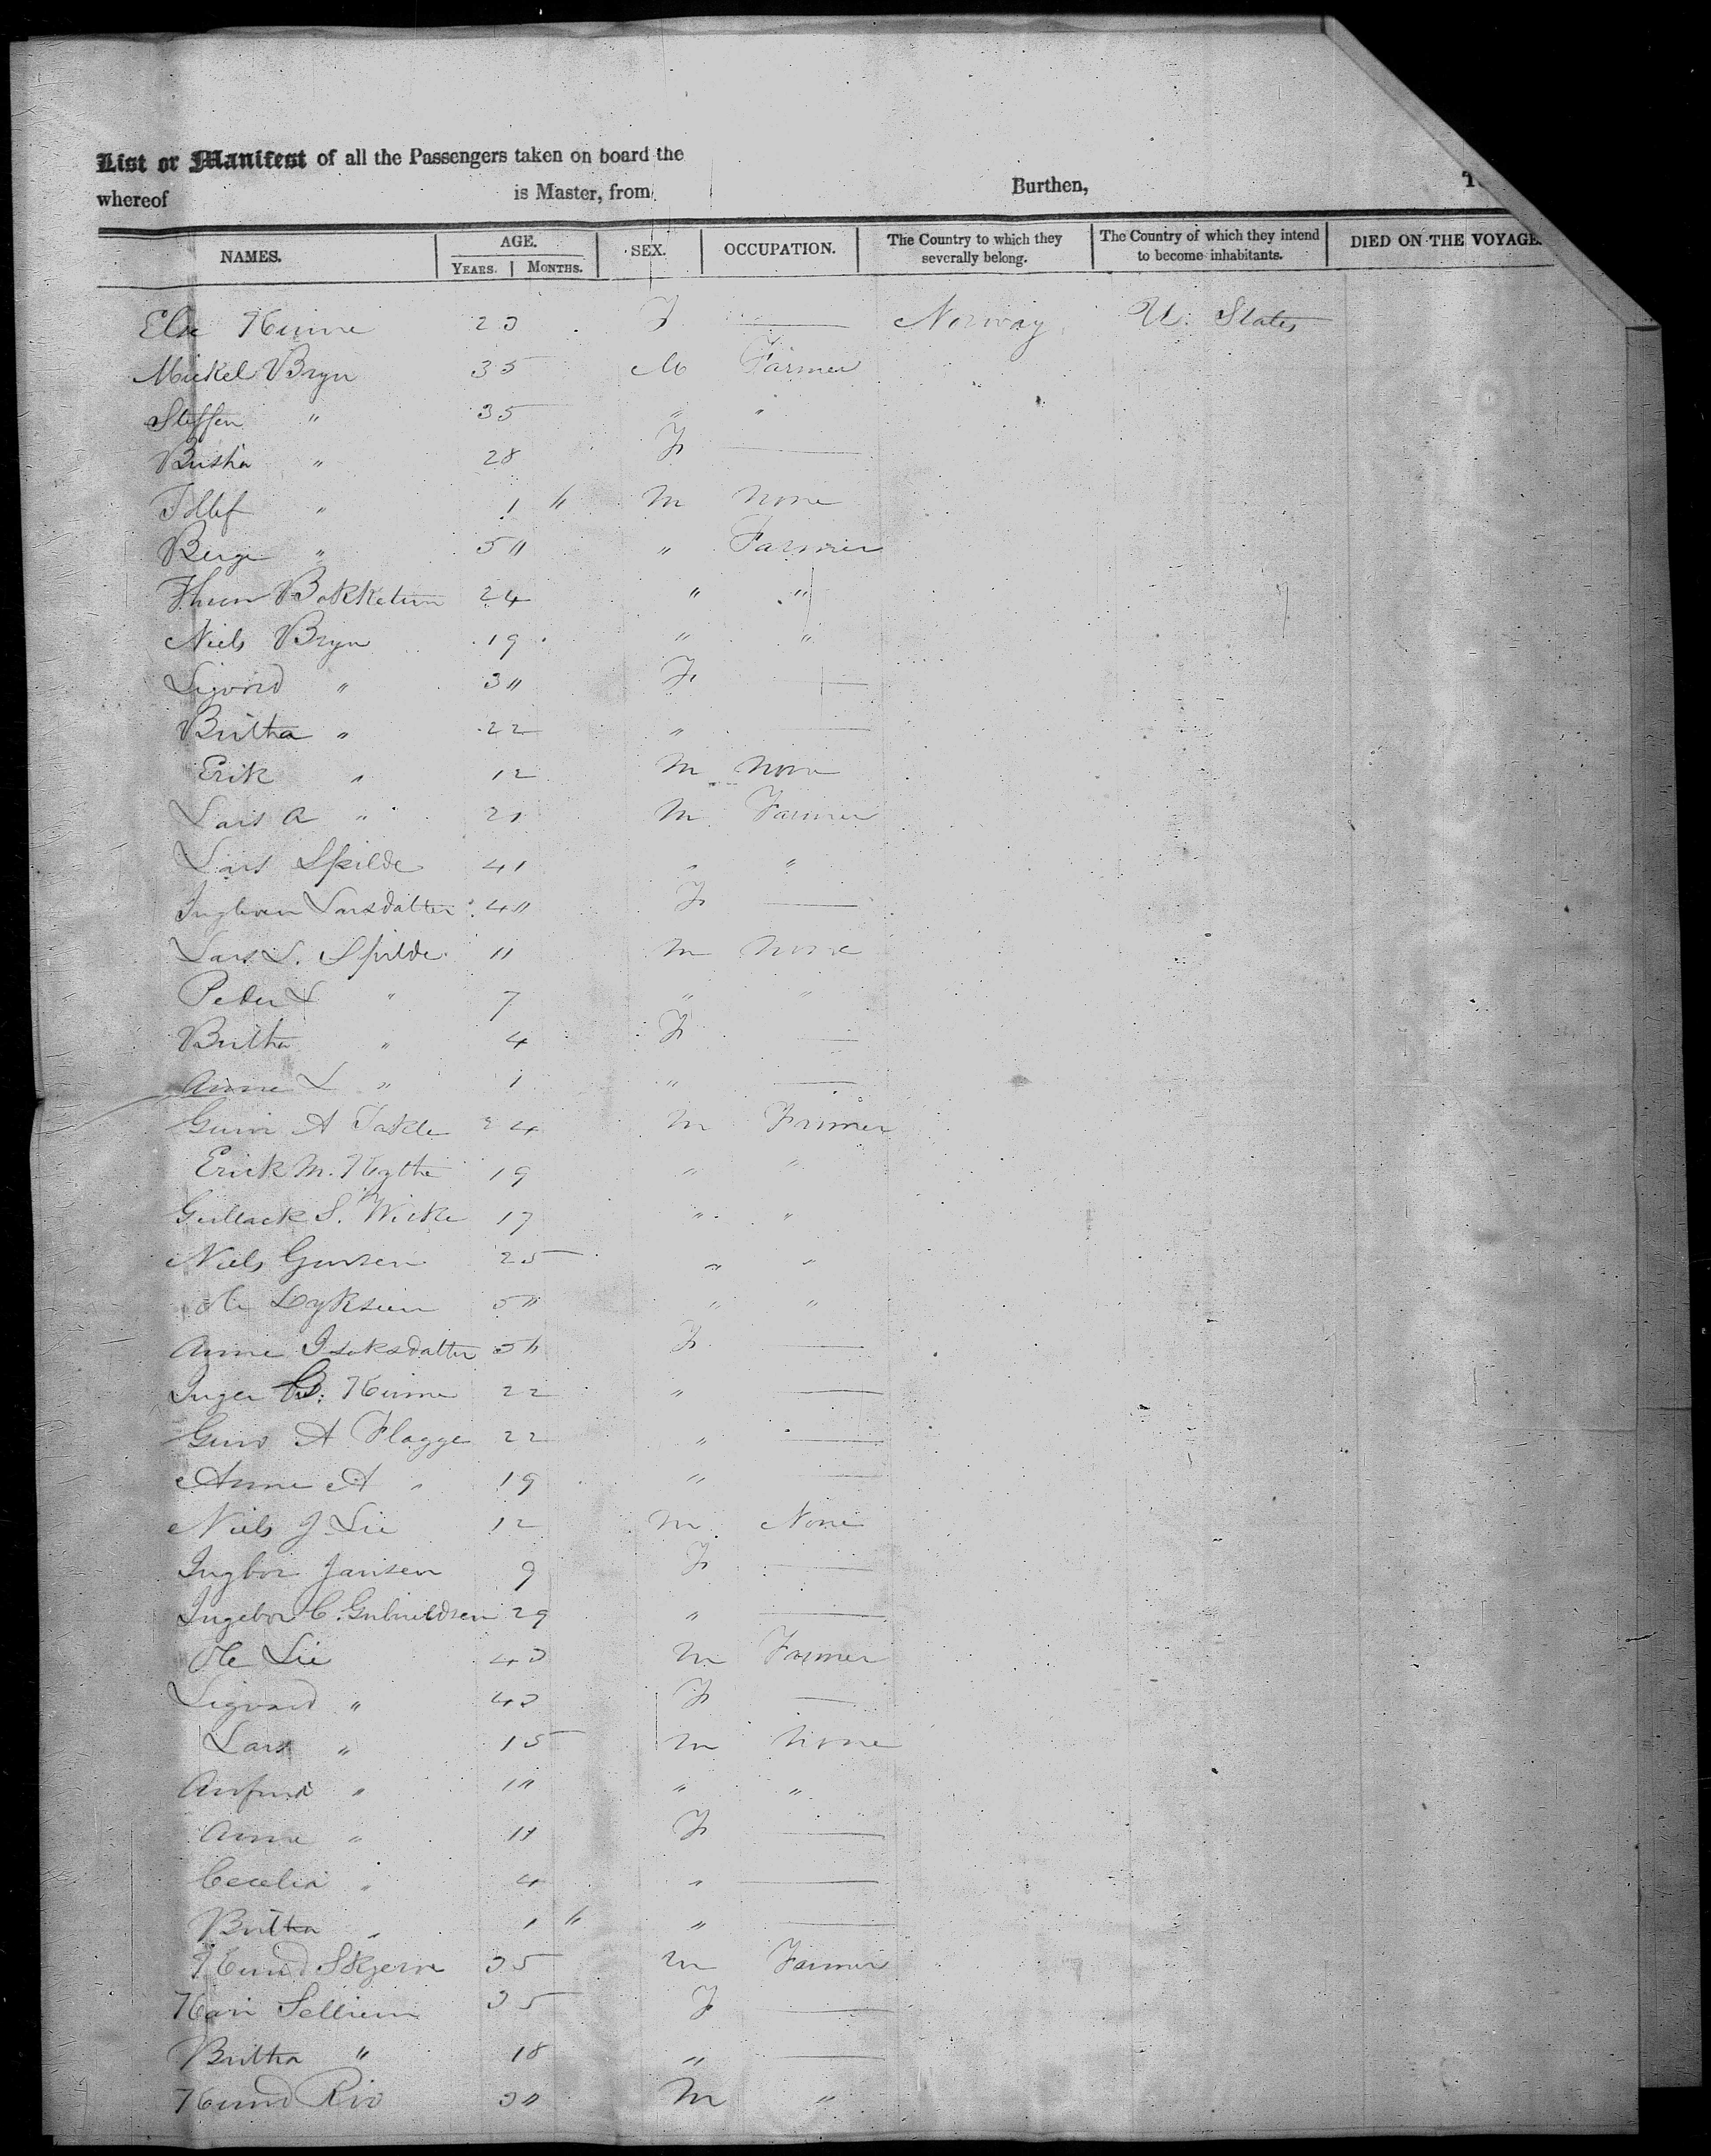 List or Manifest of all the Passengers taken on board the
whereof is Master, from Burthen,
NAMES. AGE. YEARS. MONTHS. SEX. OCCUPATION. The Country to which they severally belong. The Country of which they intend to become inhabitants. DIED ON THE VOYAGE.
Else Kinne 23 F — Norway U. States
Mickel Bryn 35 M Farmer
Steffen " 35 " "
Britha " 28 F —
" 1 " M None
Berge " 5" " Farmer
24 " "
Niels Bryn 19 " "
Sigvord " 3" F —
Britha " 22 " —
Erik " 12 M None
Lars A " 21 M Farmer
Lars Spilde 41 " "
Larsdatter 4" F —
Lars L. Spilde 11 M None
Peder L " 7 " "
Britha " 4 F —
Anne L " 1 " —
A Takle 24 M Farmer
Erick M. Kythe 19 " "
Gullack S. Wicke 17 " "
Niels 25 " "
Ole Dykseen 5" " "
Anne Isaksdatter 5" F —
Inger B. Kinne 22 " —
Guro A Flagge 22 " —
Anne A " 19 " —
Niels J. Lie 12 M None
Ingbor Jansen 9 F —
Ingebor C. 29 " —
Ole Lie 43 M Farmer
Sigvord " 43 F —
Lars " 15 M None
" 1" " "
Anne " 11 F —
Cecelia " 4 " —
Britha " 1 " " —
Knud Skjerve 35 M Farmer
Kari 35 F —
Britha " 18 " —
Knud Rio 3" M "